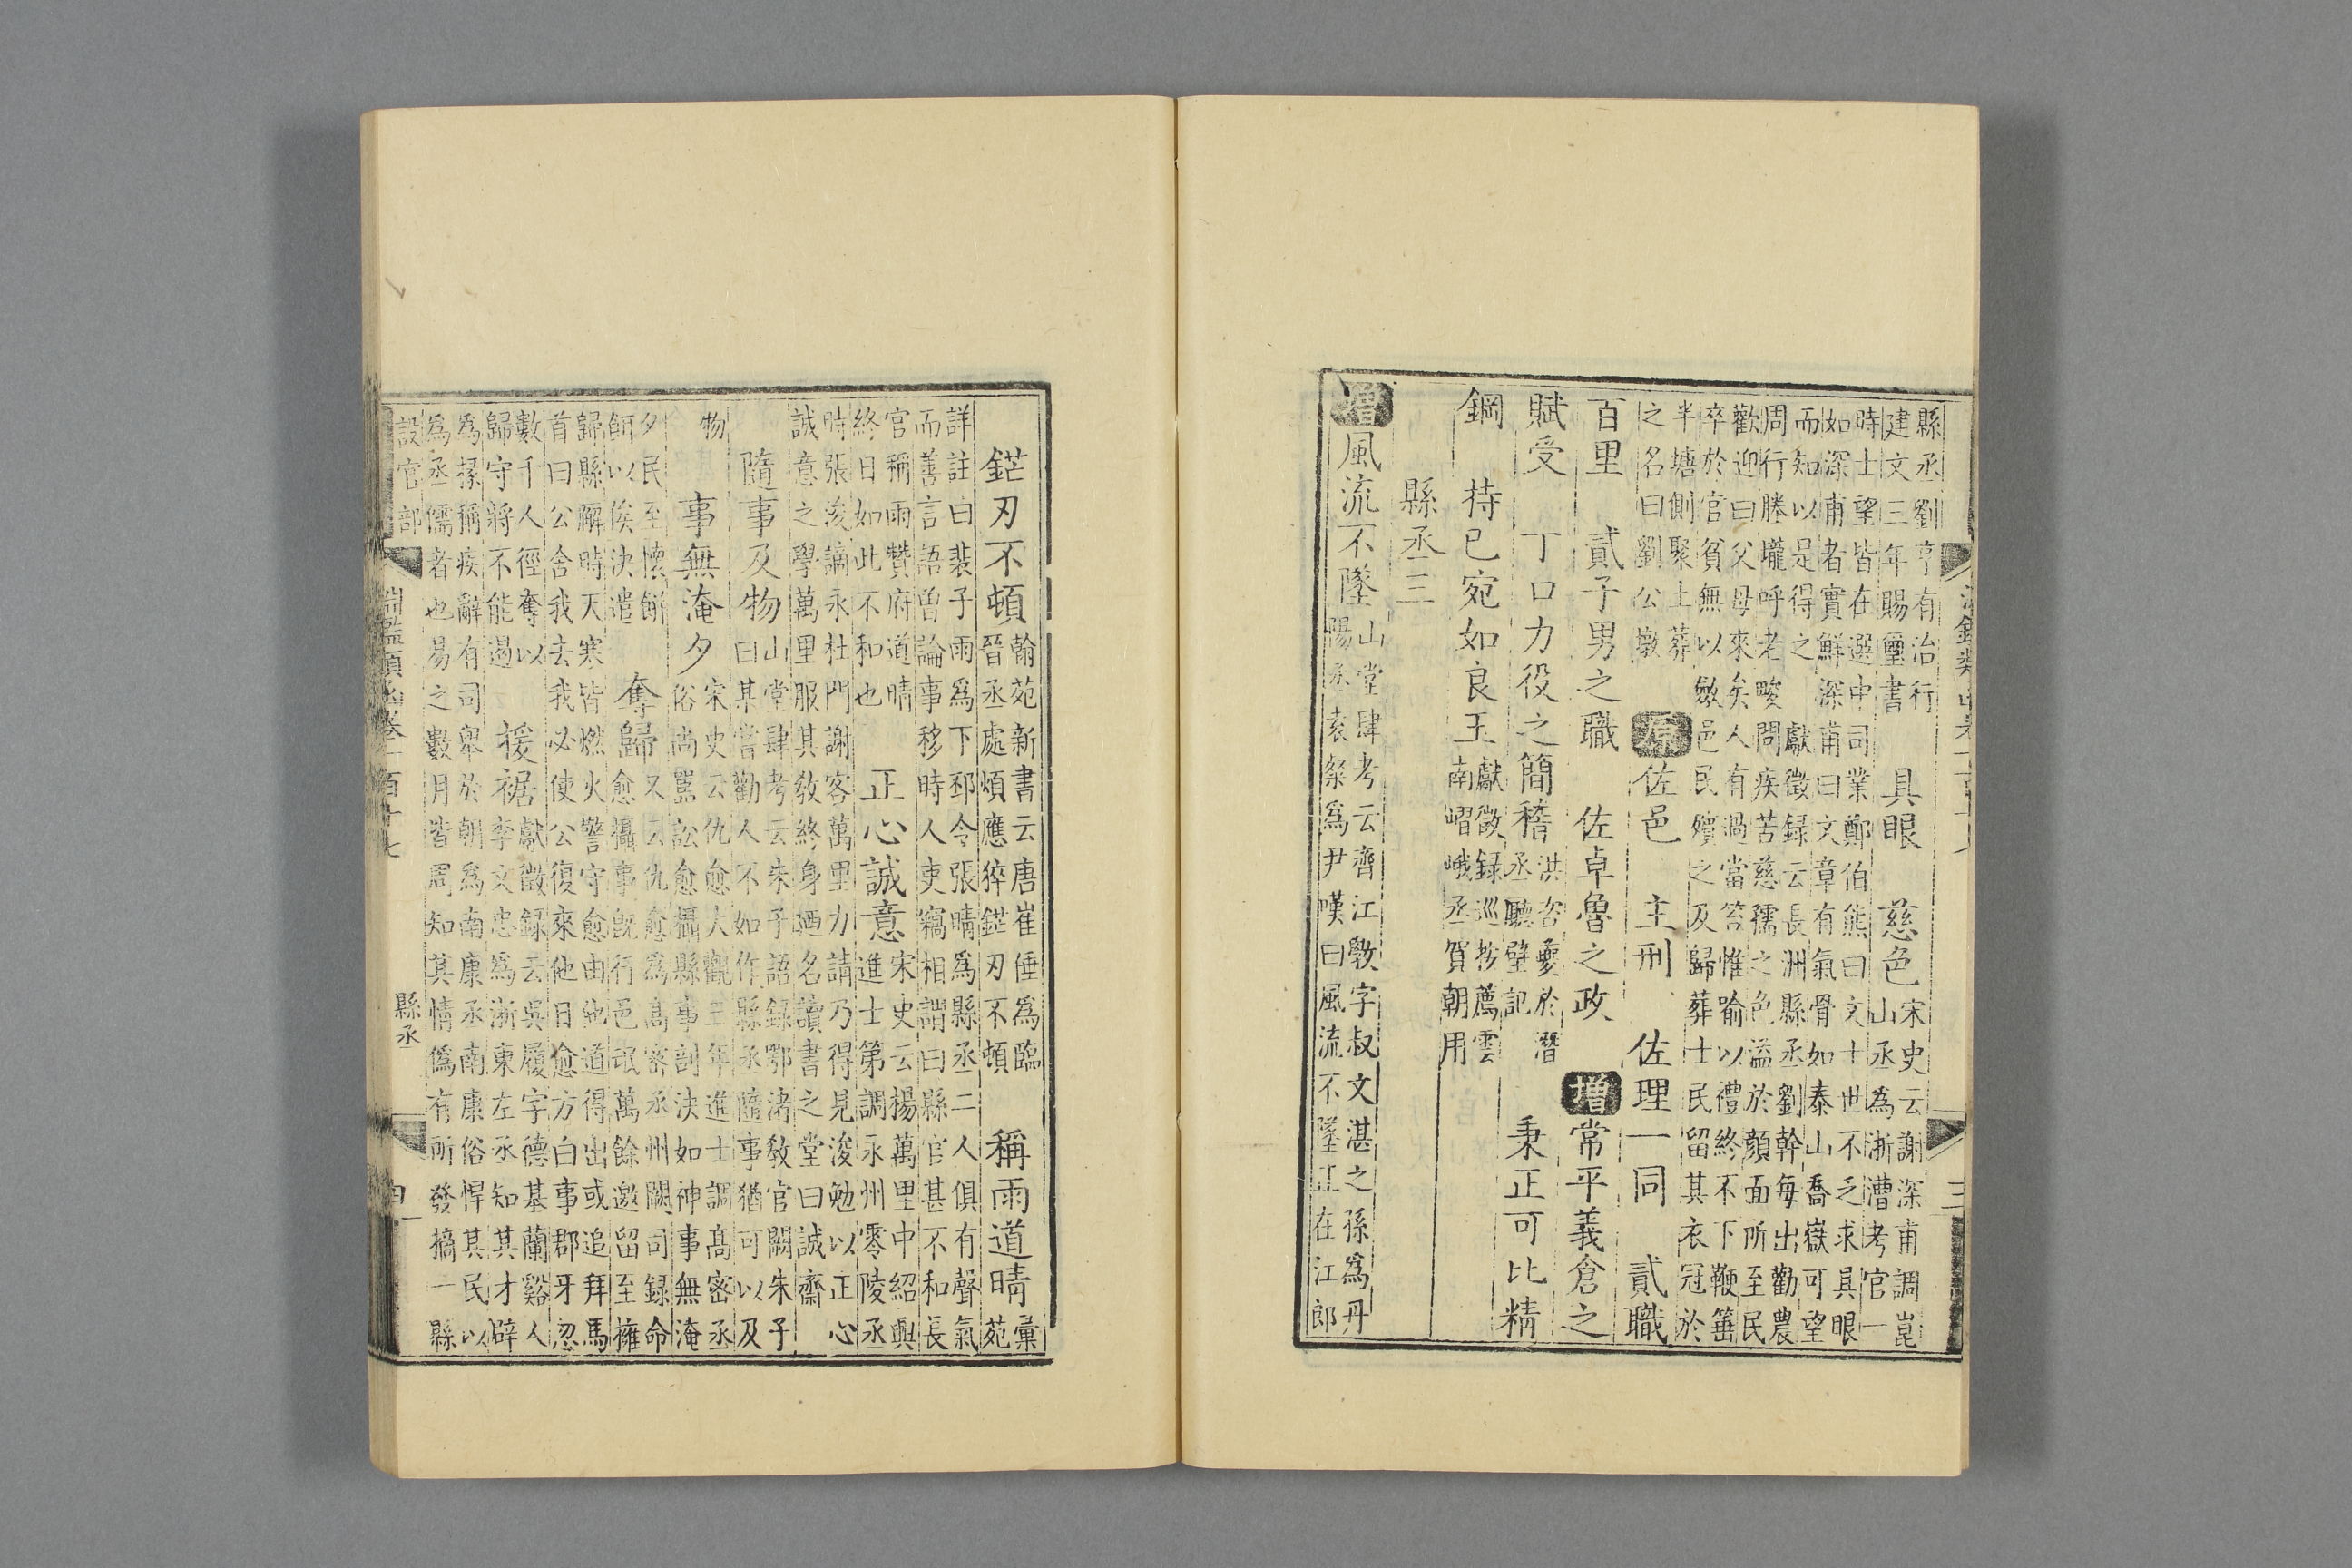 縣丞劉亨有治行
建文三年賜璽書
具眼　慈色
宋史云謝深甫調崑
山丞為浙漕考官一
時士望皆在選中司業鄭伯熊曰文士世不乏求具眼
如深甫者實鮮深甫曰文章有氣骨如泰山喬嶽可望
而知以是得之　獻徵録云長洲縣丞劉幹每出勸農
周行塍壠呼老畯問疾苦慈孺之色溢於顏面所至民
歡迎曰父母來矣人有過當笞惟喻以禮終不下鞭箠
卒於官貧無以斂邑民殯之及歸葬士民留其衣冠於
半塘側聚土葬
之名曰劉公墩
原　佐邑　主刑　佐理一同　貳職
百里　貳子男之職　佐卓魯之政　增　常平義倉之
賦受　丁口力役之簡稽
洪咨夔於潛
丞聽壁記
秉正可比精
鋼　持已宛如良玉
獻徵録巡按薦雲
南嶍峨丞賀朝用
縣丞三
增　風流不墜
山堂肆考云齊江斆字叔文湛之孫為丹
陽丞袁粲為尹嘆曰風流不墜正在江郎
鋩刃不頓
翰苑新書云唐崔倕為臨
晉丞處煩應猝鋩刃不頓
稱雨道晴
彙
苑
詳註曰裴子雨為下邳令張晴為縣丞二人俱有聲氣
而善言語曾論事移時人吏竊相謂曰縣官甚不和長
官稱雨贊府道晴
終日如此不和也
正心誠意
宋史云揚萬里中紹興
進士第調永州零陵丞
時張浚謫永杜門謝客萬里力請乃得見浚勉以正心
誠意之學萬里服其教終身廼名讀書之堂曰誠齋
隨事及物
山堂肆考云朱子語録鄂渚教官闕朱子
曰某嘗勸人不如作縣丞隨事猶可以及
物
事無淹夕
宋史云仇愈大觀三年進士調高密丞
俗尚嚚訟愈攝縣事剖決如神事無淹
夕民至懷餅
餌以俟決遣
奪歸
又云仇愈為高密丞州闕司録命
愈攝事既行邑氓萬餘邀留至擁
歸縣廨時天寒皆燃火警守愈由他道得出或追拜馬
首曰公舍我去我必使公復來他日愈方白事郡牙忽
數千人徑奪以
歸守將不能遏
援裾
獻徵録云吳履字德基蘭谿人
李文忠為浙東左丞知其才辟
為掾稱疾辭有司舉於朝為南康丞南康俗悍其民以
為丞儒者也易之數月皆周知其情僞有所發擿一縣
設官部
淵鑑類函卷一百十七
縣丞
四